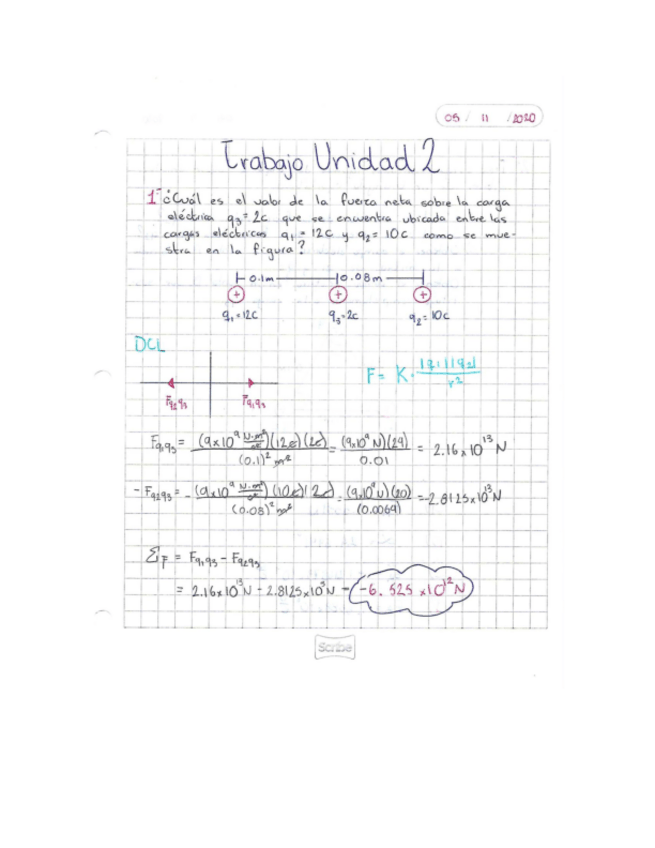 05 / 11 / 2020
Trabajo Unidad 2
1- ¿Cuál es el valor de la fuerza neta sobre la carga
eléctrica q₃=2c que se encuentra ubicada entre las
cargas eléctricas q₁=12c y q₂=10c como se mue-
stra en la figura?
0.1m 0.08m
+ + +
q₁=12c q₃=2c q₂=10c
DCL
F = K · |q₁||q₂| / r²
Fq₂q₃ Fq₁q₃
Fq₁q₃ = (9x10⁹ N·m²/c²)(12c)(2c) / (0.1)² m² = (9x10⁹ N)(24) / 0.01 = 2.16x10¹³ N
- Fq₂q₃ = - (9x10⁹ N·m²/c²)(10c)(2c) / (0.08)² m² = (9x10⁹ N)(20) / (0.0064) = -2.8125x10¹³ N
ΣF = Fq₁q₃ - Fq₂q₃
= 2.16x10¹³ N - 2.8125x10¹³ N = -6.525 x10¹² N
Scribe